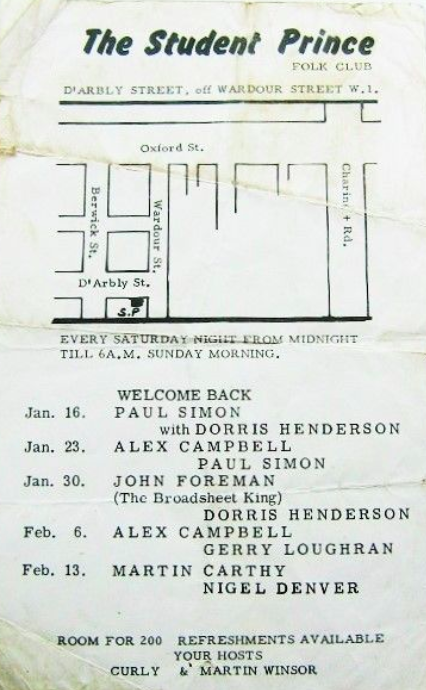 The Student Prince
FOLK CLUB
D'ARBLY STREET, off WARDOUR STREET W.1.
Oxford St.
Berwick St.
Wardour St.
Charing + Rd.
D'Arbly St.
S.P
EVERY SATURDAY NIGHT FROM MIDNIGHT
TILL 6A.M. SUNDAY MORNING.
WELCOME BACK
Jan. 16. PAUL SIMON
with DORRIS HENDERSON
Jan. 23. ALEX CAMPBELL
PAUL SIMON
Jan. 30. JOHN FOREMAN
(The Broadsheet King)
DORRIS HENDERSON
Feb. 6. ALEX CAMPBELL
GERRY LOUGHRAN
Feb. 13. MARTIN CARTHY
NIGEL DENVER
ROOM FOR 200 REFRESHMENTS AVAILABLE
YOUR HOSTS
CURLY & MARTIN WINSOR